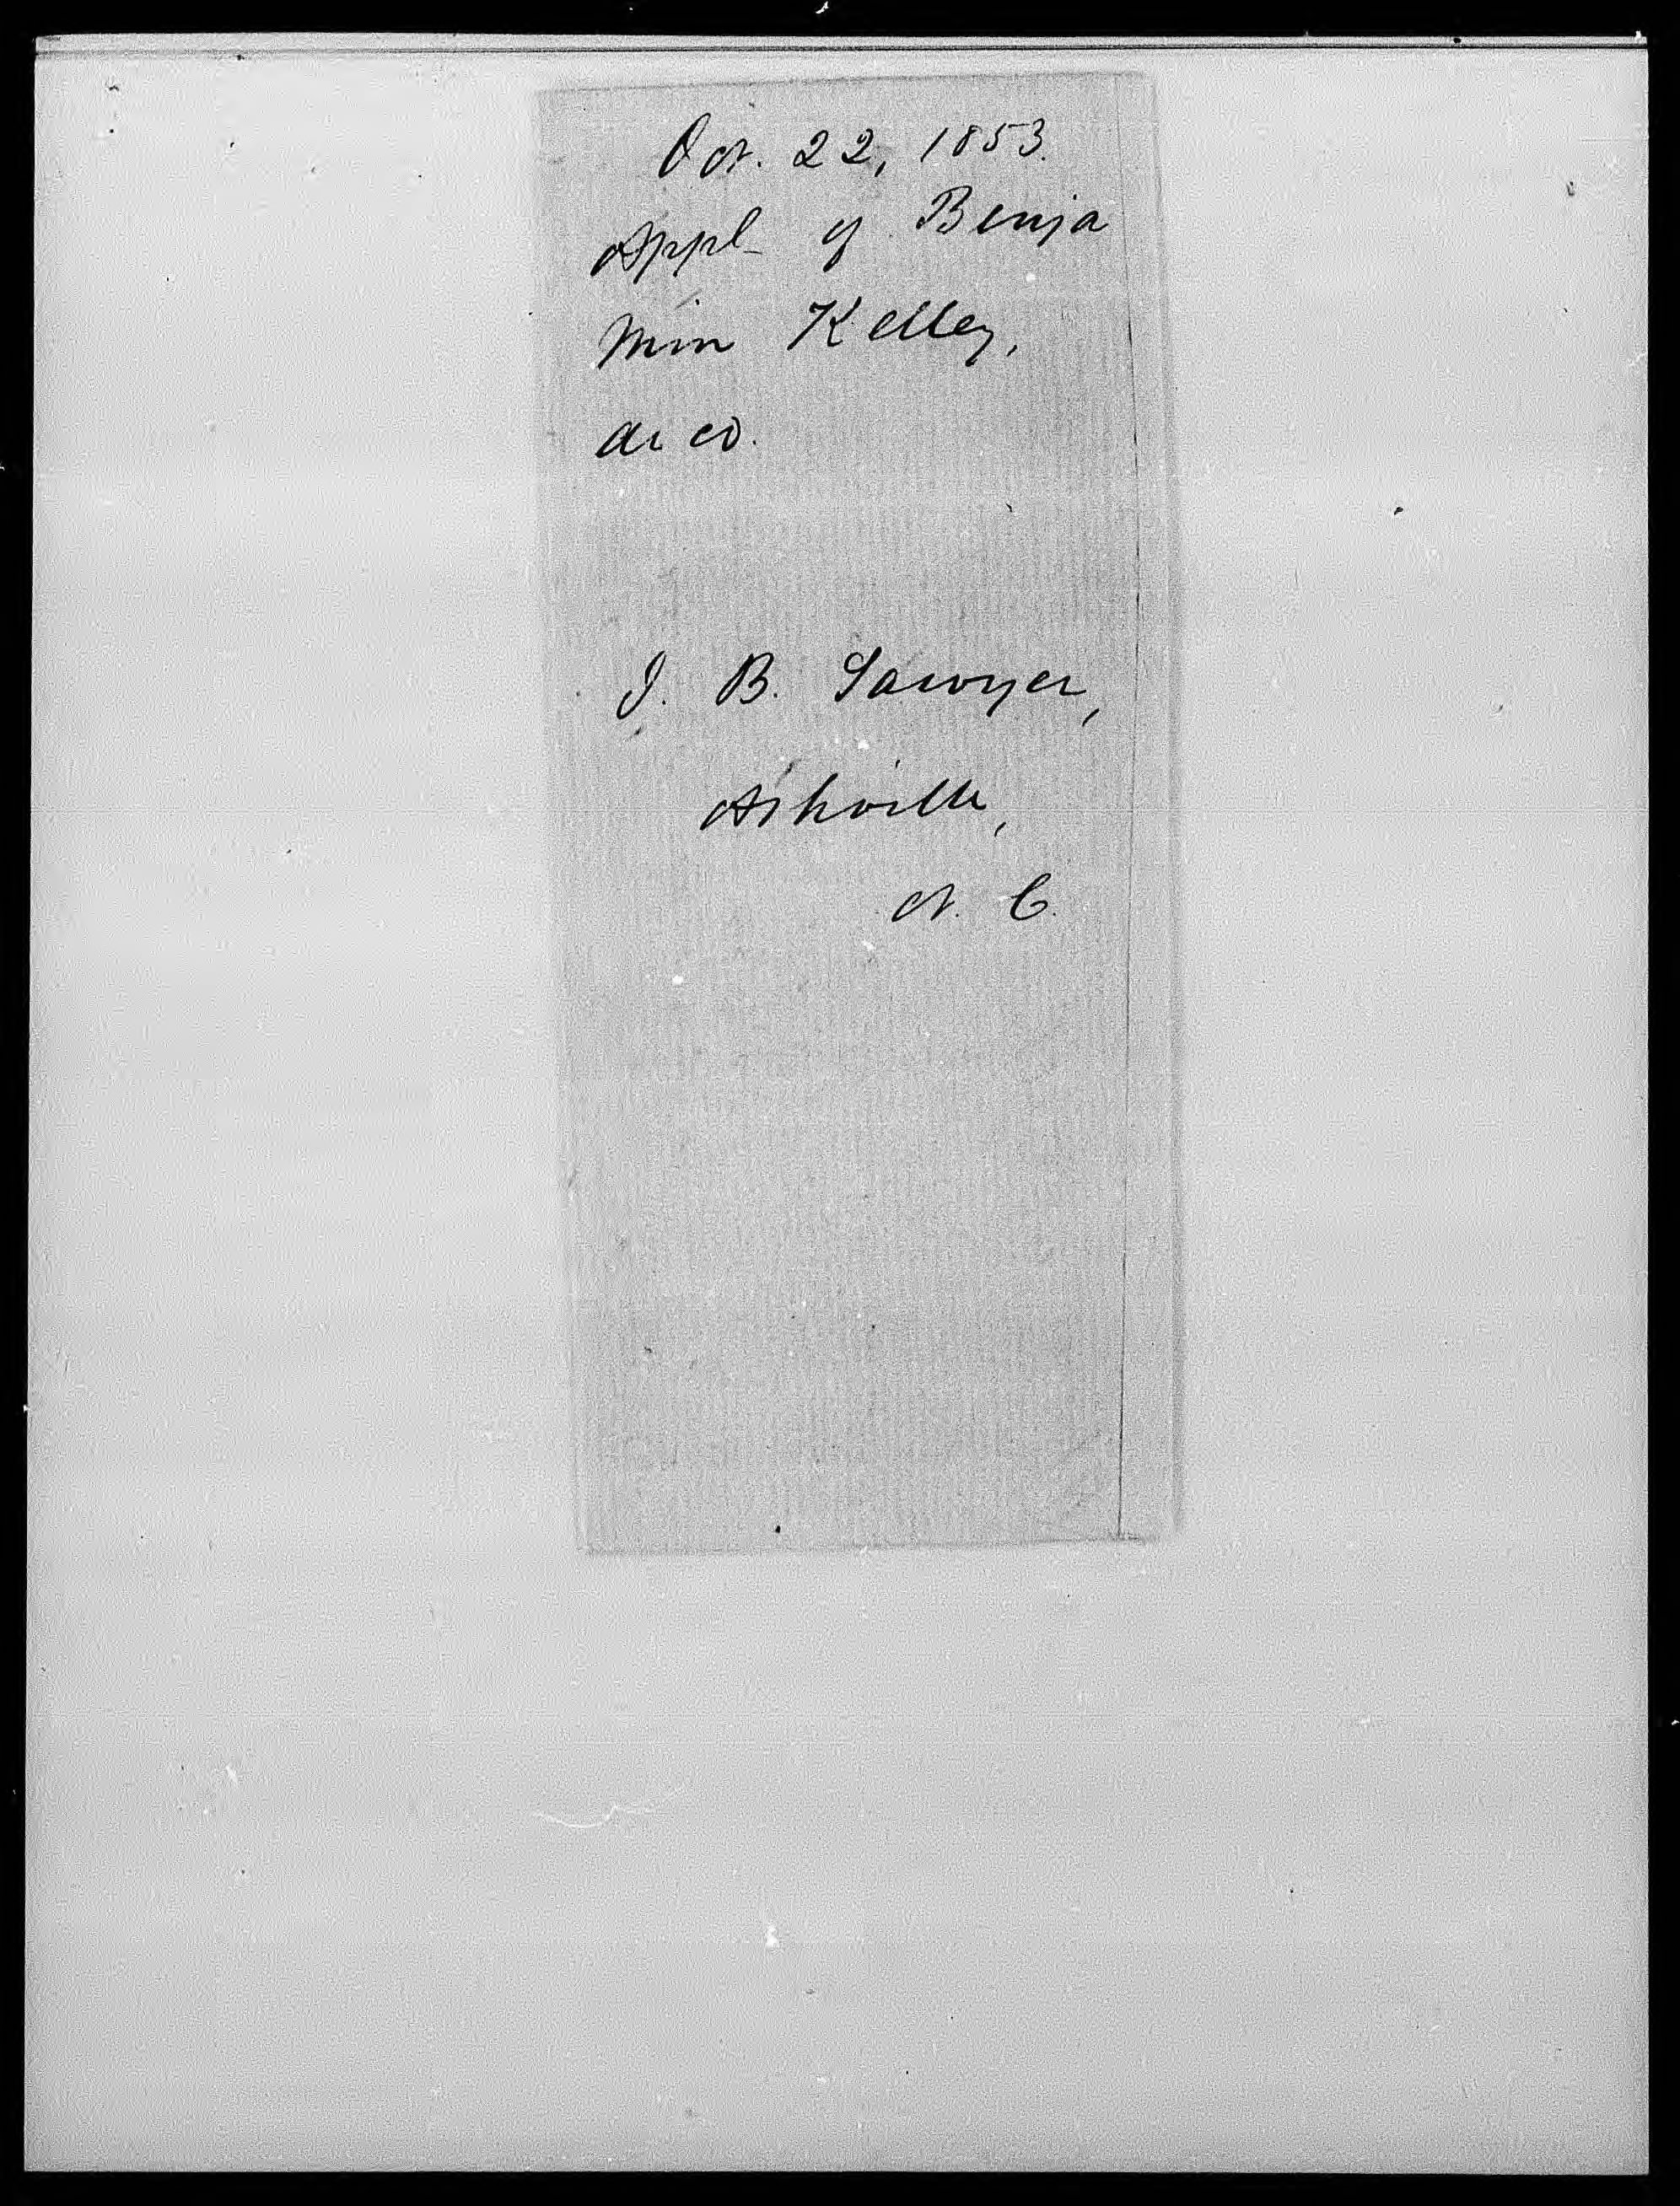 Oct. 22, 1853.
Appl- of Benja
min Kelley,
decd.
J. B. Sawyer,
Ashville,
N. C.